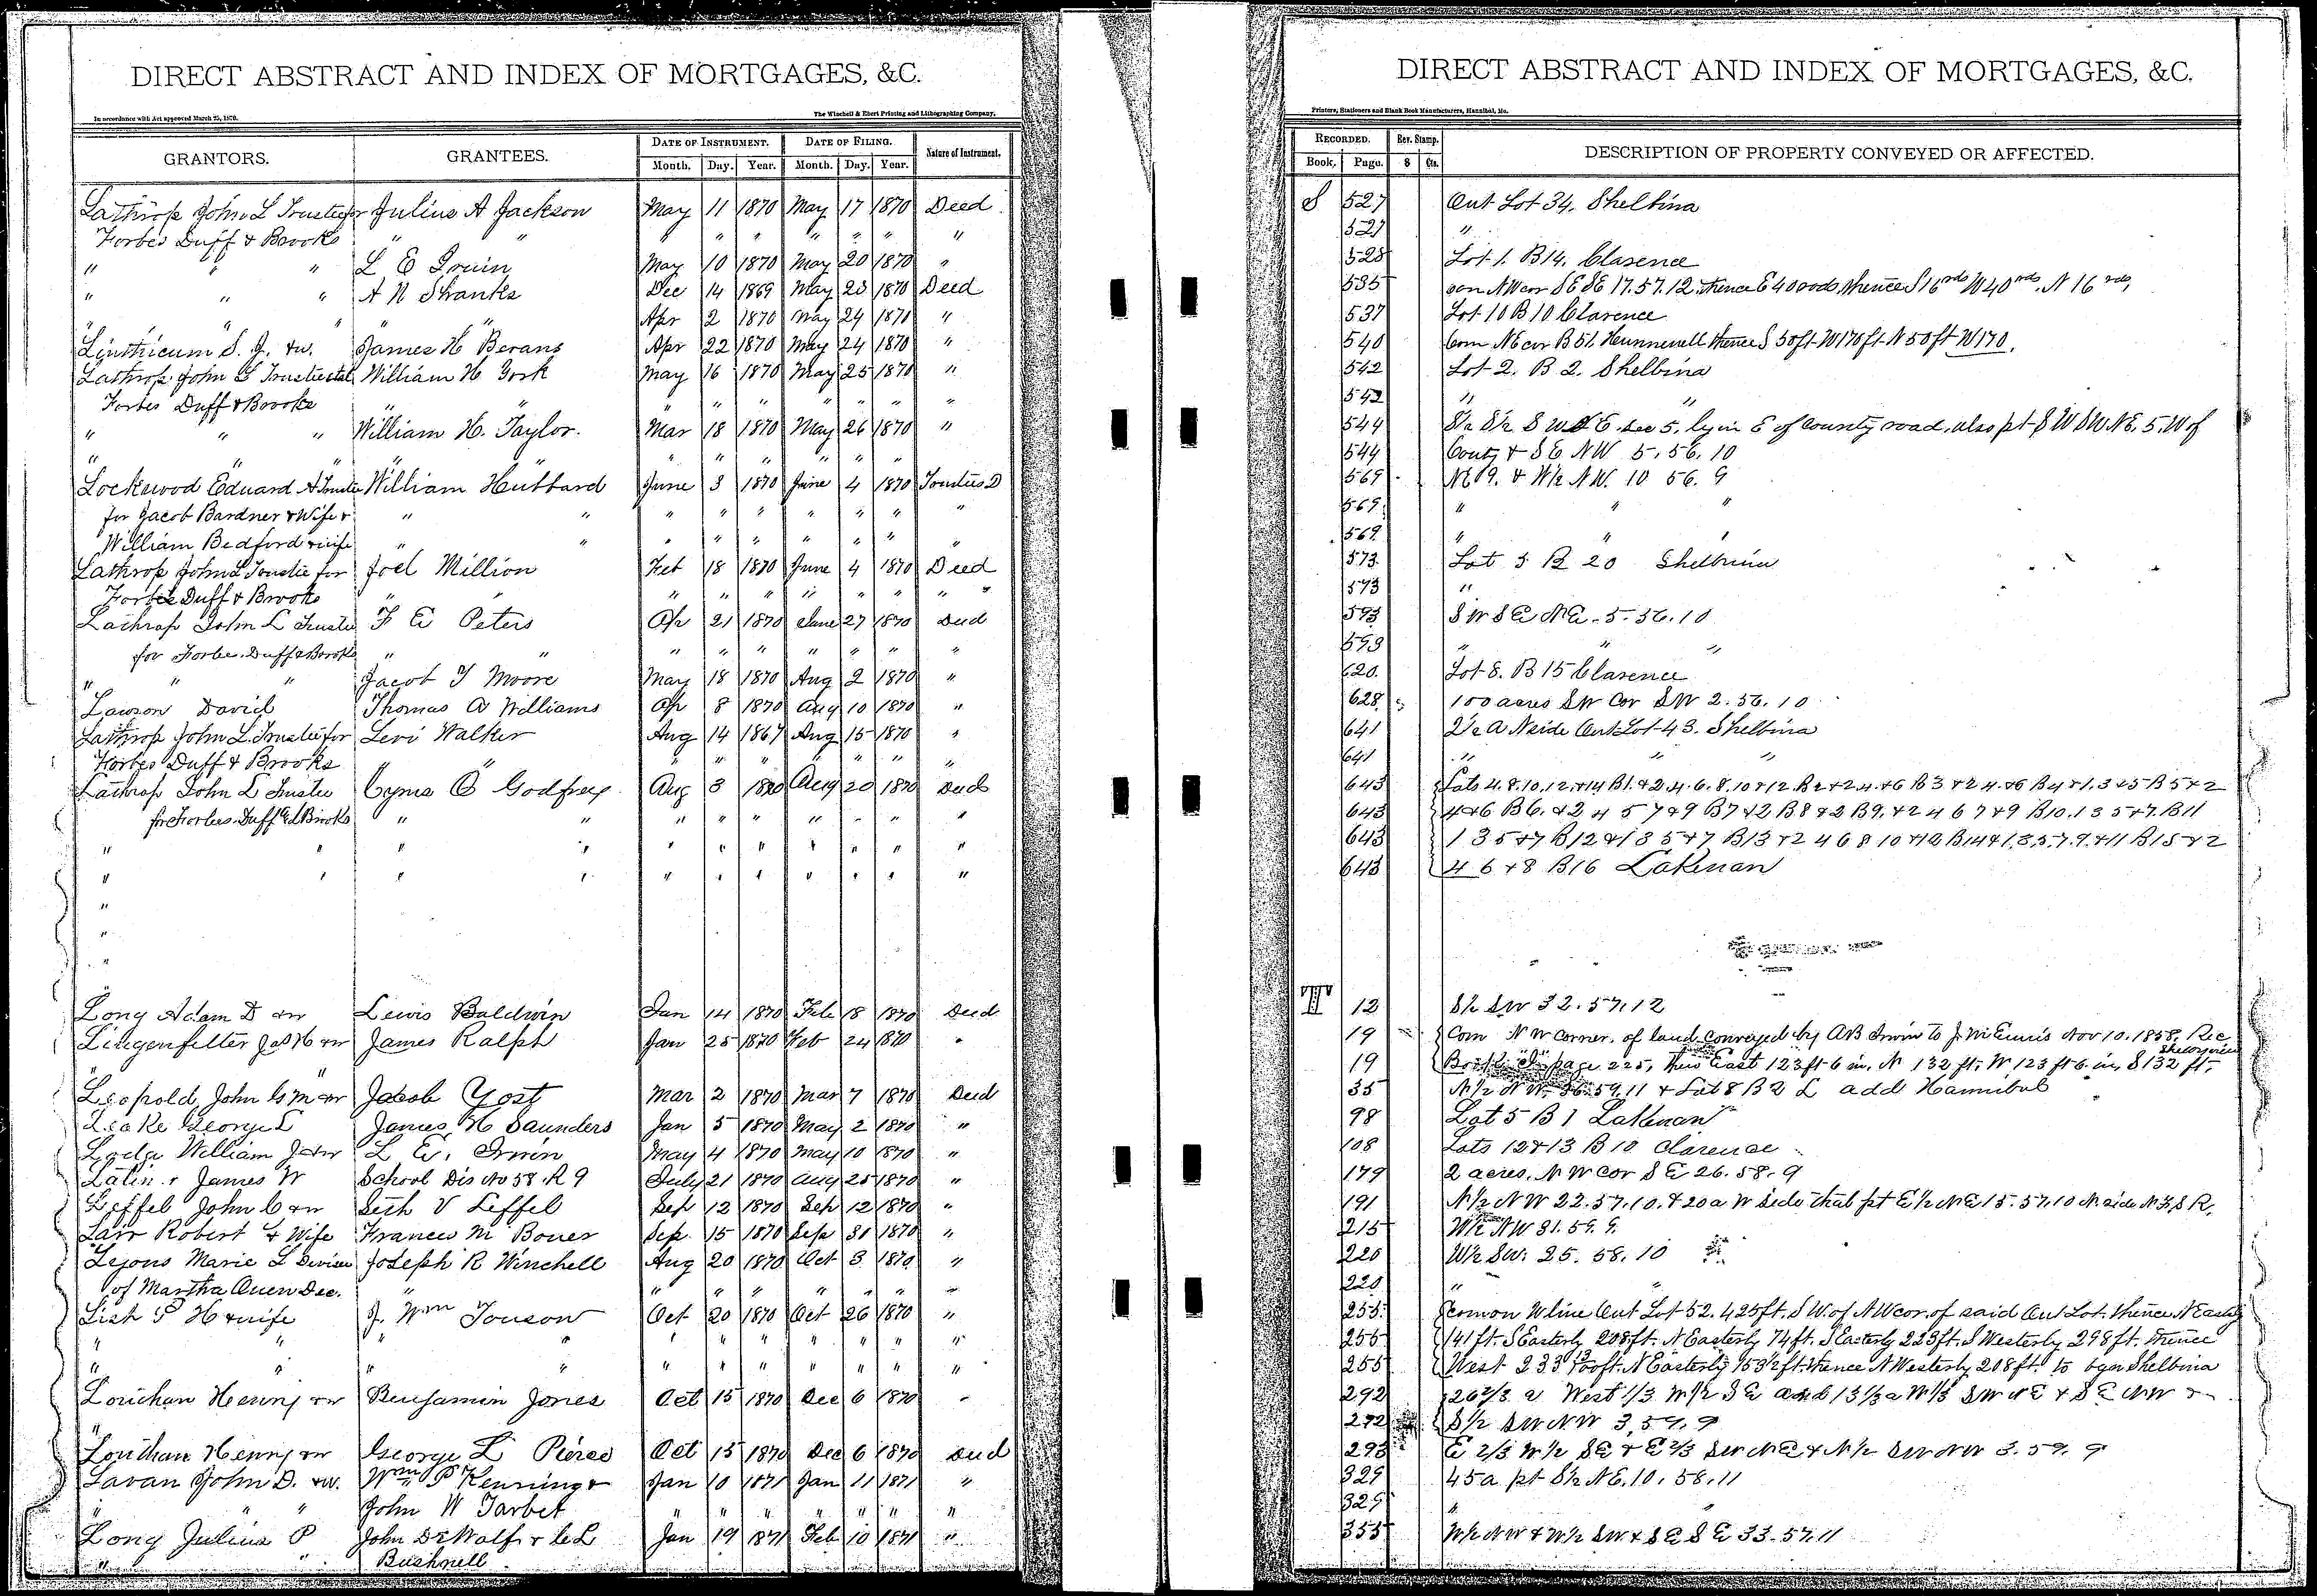 DIRECT ABSTRACT AND INDEX OF MORTGAGES, &C.
In accordance with Act approved March 25, 1870.
The Winchell & Ebert Printing and Lithographing Company.
GRANTORS. GRANTEES. DATE OF INSTRUMENT. DATE OF FILING. Nature of Instrument.
Month. Day. Year. Month. Day. Year.
Lathrop John L Trustee for Julius A Jackson May 11 1870 May 17 1870 Deed
Forbes Duff & Brooks " " " " " " " " "
" " " L E Irwin May 10 1870 May 20 1870 "
" " " A N Shanks Dec 14 1869 May 23 1870 Deed
" " " " Apr 2 1870 May 24 1870 "
Linthicum S. J. &w. James H Bevans Apr 22 1870 May 24 1870 "
Lathrop John L Trustee William H Gosh May 16 1870 May 25 1870 "
Forbes Duff & Brooks " " " " " " " " "
" " " William H. Taylor. Mar 18 1870 May 26 1870 "
" " " " " " " " " "
Lockwood Edward A Trustee William Hubbard June 3 1870 June 4 1870 Trustees D
for Jacob Bardner & Wife & " " " " " " " " "
William Bedford & wife " " " " " " " " "
Lathrop John L Trustee for Joel Million Feb 18 1870 June 4 1870 Deed
Forbes Duff & Brooks " " " " " " " " "
Lathrop John L Trustee F E Peters Ap 21 1870 June 27 1870 Deed
for Forbes. Duff & Brooks " " " " " " " " "
" " " Jacob T Moore May 18 1870 Aug 2 1870 "
Lawson David Thomas A Williams Ap 8 1870 Aug 10 1870 "
Lathrop John L. Trustee for Levi Walker Aug 14 1867 Aug 15 1870 "
Forbes Duff & Brooks " " " " " " " "
Lathrop John L Trustee Cyrus O Godfrey Aug 3 1870 Aug 20 1870 Deed
for Forbes. Duff & Brooks " " " " " " " " "
" " " " " " " " " " "
" " " " " " " " " " "
"
"
"
Long Adam D &w Lewis Baldwin Jan 14 1870 Feb 18 1870 Deed
Lingenfelter Jas H &w James Ralph Jan 25 1870 Feb 24 1870 "
" "
Leopold John G M &w Jacob Yost Mar 2 1870 Mar 7 1870 Deed
Leake George L James H Saunders Jan 5 1870 May 2 1870 "
William J &w L E. Irwin May 4 1870 May 10 1870 "
James W School Dis No 58. R 9 July 21 1870 Aug 25 1870 "
Leffel John C &w Seth V Leffel Sep 12 1870 Sep 12 1870 "
Larr Robert & Wife Frances M Bower Sep. 15 1870 Sep 31 1870 "
Lyons Marie L Devisee Joseph R Winchell Aug 20 1870 Oct 3 1870 "
of Martha Dec. " " " " " " " "
Lish P H & wife J. Wm Towson Oct 20 1870 Oct 26 1870 "
" " " " " " " " " " "
" " " " " " " " " " "
Louthan Henry &w Benjamin Jones Oct 15 1870 Dec 6 1870 "
"
Louthan Henry &w George L Pierce Oct 15 1870 Dec 6 1870 Deed
Lavan John D. &w. Wm P Jan 10 1871 Jan 11 1871 "
" " John W Tarbet " " " " " " "
Long Julius P John DeWolf & C L Jan 19 1871 Feb 10 1871 "
" " Bushnell
DIRECT ABSTRACT AND INDEX OF MORTGAGES, &C.
Printers, Stationers and Blank Book Manufacturers, Hannibal, Mo.
RECORDED. Rev. Stamp. DESCRIPTION OF PROPERTY CONVEYED OR AFFECTED.
Book, Page. $ Cts.
S 527 Out Lot 34. Shelbina
527 "
528 Lot 1. B 14. Clarence
535 NW cor SE SE 17. 57. 12. thence E 40 rods, thence S 16 rds W 40 rds, N 16 rds,
537 Lot 10 B 10 Clarence
540 Com NE cor B 51. Hunnewell thence S 50 ft W 170 ft N 50 ft W 170.
542 Lot 2. B 2. Shelbina
542 " "
544 S½ S½ S W E. sec 5. lyin E of County road, also pt S W SW NE, 5, W of
544 & SE NW 5. 56. 10
569 NE 9. & W½ NW. 10 56. 9
569 " " "
569 " " "
573 Lot 5 B 20 Shelbina
573 "
593 S W S E N E. 5. 56. 10
593 " " "
620. Lot 8. B 15 Clarence
628 100 acres SW Cor SW 2. 56. 10
641 2½ A N side Out Lot 43. Shelbina
641 " " "
643 Lots 4. 8. 10, 12, & 14 B1. & 2. 4. 6. 8. 10 & 12 B2 & 2. 4. & 6 B3 & 2 4. & 6 B4 & 1. 3 & 5 B5 & 2
643 4 & 6 B6. & 2 4 5 7 & 9 B7 & 2 B8 & 2 B9. & 2 4 6 7 & 9 B10. 1 3 5 & 7. B11
643 1 3 5 & 7 B12 & 1 3 5 & 7 B13 & 2 4 6 8 10 & 12 B14 & 1, 3, 5, 7. 9. & 11 B15 & 2
643 4 6 & 8 B16 Lakenan
T 12 S½ SW 32. 57. 12
19 Com N W Corner. of land conveyed by A B Irwin to J. McEnnis Nov 10. 1858, Rec
19 Book page 225, thence East 123 ft 6 in, N 132 ft, W 123 ft 6 in, S 132 ft. Shelbyville
35 N½ N W. 36. 59. 11 & Lot 8 B 2 L add Hannibal
98 Lot 5 B 1 Lakenan
108 Lots 12 & 13 B 10 Clarence
179 2 acres, N W Cor S E 26. 58. 9
191 N½ N W 22. 57. 10. & 20 a W side that pt E½ NE 15. 57. 10 N. side N. F. S R.
215 W½ NW 31. 59. 9.
220 W½ SW. 25. 58. 10
220 " "
255 com on W line Out Lot 52. 425 ft. S W. of N W cor. of said Out Lot. thence N Easterly
255 141 ft. S Easterly 208 ft. N Easterly 74 ft. S Easterly 223 ft. S Westerly 298 ft. thence
255 West 233 13/100 ft. N Easterly 153½ ft. thence N Westerly 208 ft. to bgn Shelbina
292 26 2/3 a West 1/3 W½ S E and 13 1/3 a W 1/3 S W N E & S E N W &
292 S½ SW NW 3, 59, 9
293 E 2/3 W½ SE & E 2/3 SW NE & N½ SW NW 3. 59. 9
329 45 a pt S½ NE, 10. 58. 11
329 " "
355 W½ NW & W½ SW & SE SE 33. 57. 11